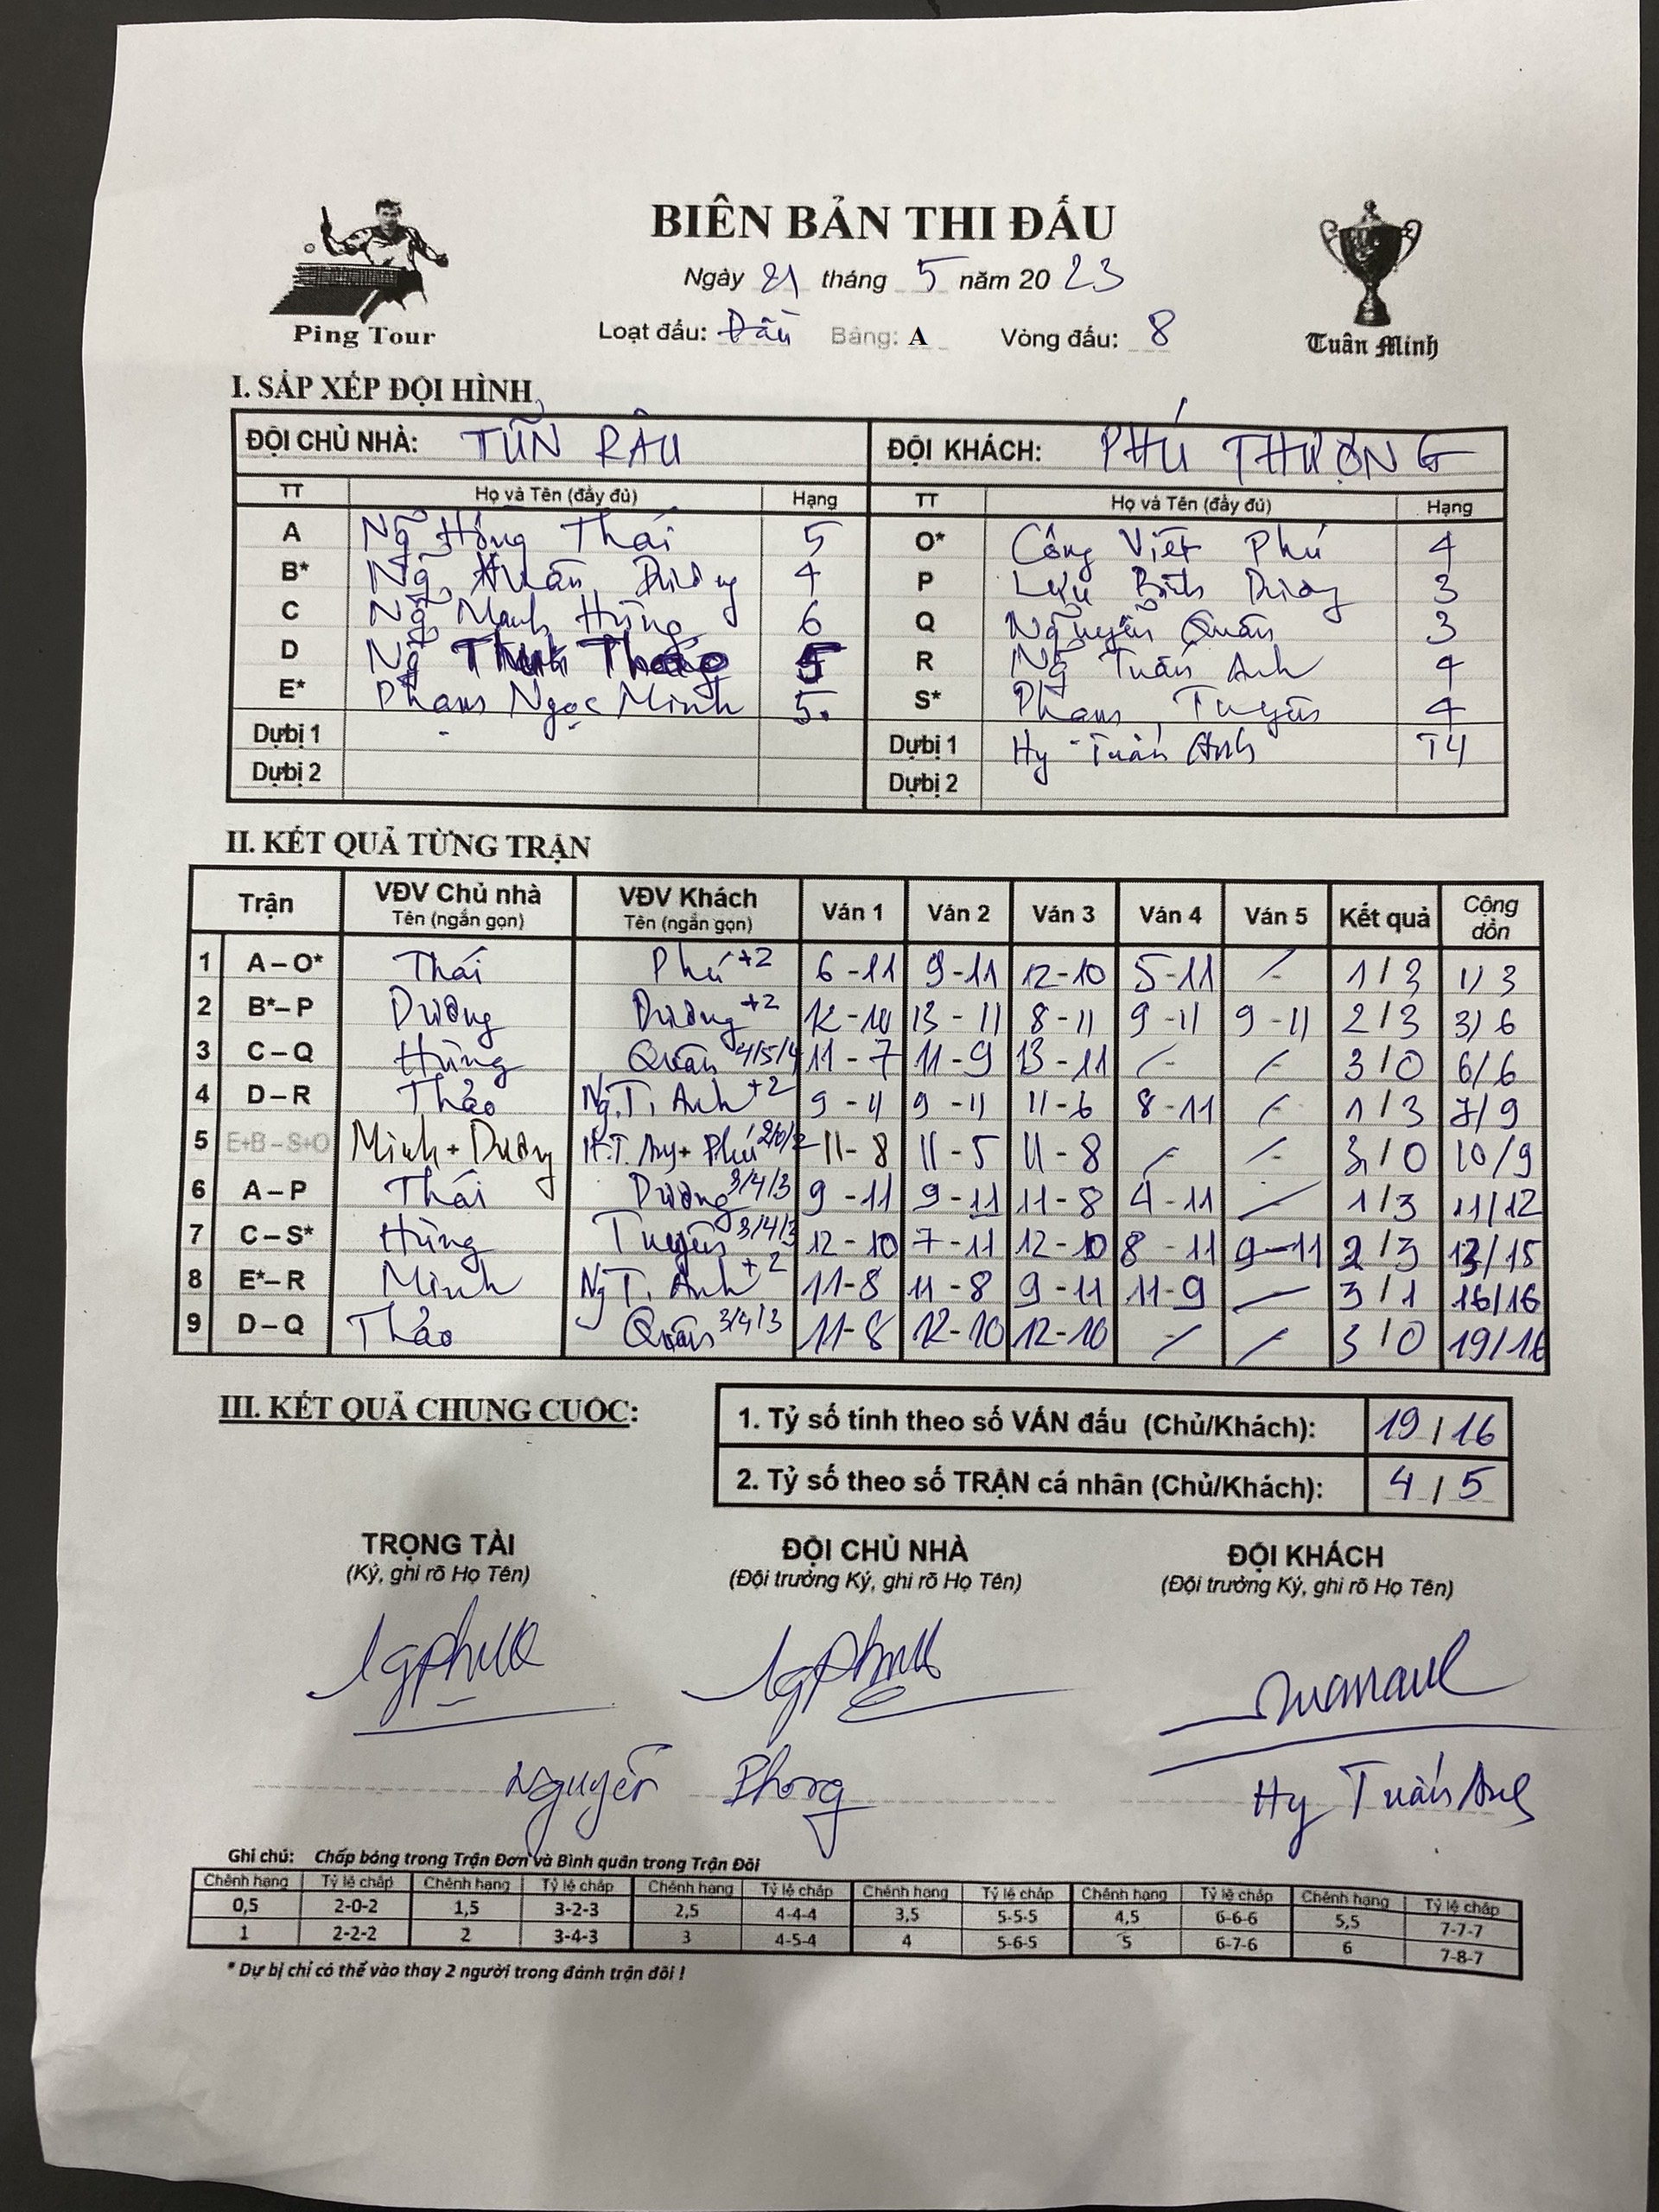 BIÊN BẢN THI ĐẤU
Ngày 21 tháng 5 năm 2023
Ping Tour
Loạt đấu: Đấu Bảng: A Vòng đấu: 8
Tuấn Minh
I. SẮP XẾP ĐỘI HÌNH
ĐỘI CHỦ NHÀ: TUẤN RÂU ĐỘI KHÁCH: PHÚ THƯỢNG
TT Họ và Tên (đầy đủ) Hạng TT Họ và Tên (đầy đủ) Hạng
A Ng Hồng Thái 5 O* Công Việt Phú 4
B* Ng Xuân Dương 4 P Lưu Bình Dương 3
C Ng Mạnh Hùng 6 Q Nguyễn Quân 3
D Ng Thảo 5 R Ng Tuấn Anh 4
E* Phạm Ngọc Minh 5 S* Phạm Tuyên 4
Dự bị 1 Dự bị 1 Hy Tuấn Anh T4
Dự bị 2 Dự bị 2
II. KẾT QUẢ TỪNG TRẬN
Trận VĐV Chủ nhà Tên (ngắn gọn) VĐV Khách Tên (ngắn gọn) Ván 1 Ván 2 Ván 3 Ván 4 Ván 5 Kết quả Cộng dồn
1 A – O* Thái Phú +2 6-11 9-11 12-10 5-11 - 1/3 1/3
2 B* – P Dương Dương +2 12-10 13-11 8-11 9-11 9-11 2/3 3/6
3 C – Q Hùng Quân 4/5/4 11-7 11-9 13-11 - - 3/0 6/6
4 D – R Thảo Ng.T. Anh +2 9-11 9-11 11-6 8-11 - 1/3 7/9
5 E+B – S+O Minh + Dương H.T. Anh + Phú 2/0/2 11-8 11-5 11-8 - - 3/0 10/9
6 A – P Thái Dương 3/4/3 9-11 9-11 11-8 4-11 - 1/3 11/12
7 C – S* Hùng Tuyên 3/4/3 12-10 7-11 12-10 8-11 9-11 2/3 13/15
8 E* – R Minh Ng T. Anh +2 11-8 11-8 9-11 11-9 - 3/1 16/16
9 D – Q Thảo Quân 3/4/3 11-8 12-10 12-10 - - 3/0 19/16
III. KẾT QUẢ CHUNG CUỘC:
1. Tỷ số tính theo số VÁN đấu (Chủ/Khách): 19/16
2. Tỷ số theo số TRẬN cá nhân (Chủ/Khách): 4/5
TRỌNG TÀI ĐỘI CHỦ NHÀ ĐỘI KHÁCH
(Ký, ghi rõ Họ Tên) (Đội trưởng Ký, ghi rõ Họ Tên) (Đội trưởng Ký, ghi rõ Họ Tên)
Nguyễn Phong Hy Tuấn Anh
Ghi chú: Chấp bóng trong Trận Đơn và Bình quân trong Trận Đôi
Chênh hạng Tỷ lệ chấp Chênh hạng Tỷ lệ chấp Chênh hạng Tỷ lệ chấp Chênh hạng Tỷ lệ chấp Chênh hạng Tỷ lệ chấp Chênh hạng Tỷ lệ chấp
0,5 2-0-2 1,5 3-2-3 2,5 4-4-4 3,5 5-5-5 4,5 6-6-6 5,5 7-7-7
1 2-2-2 2 3-4-3 3 4-5-4 4 5-6-5 5 6-7-6 6 7-8-7
* Dự bị chỉ có thể vào thay 2 người trong đánh trận đôi !